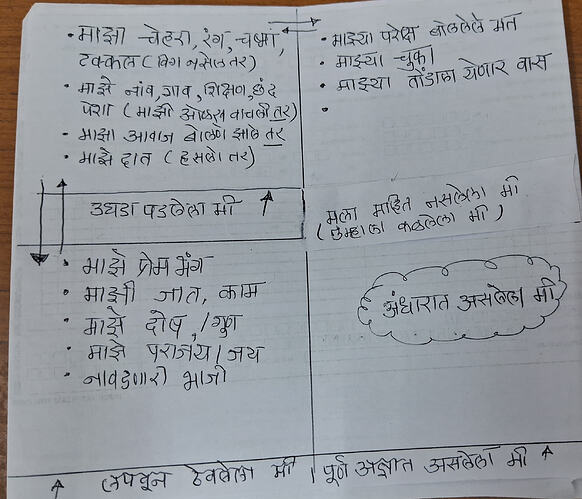 • माझा चेहरा, रंग, चष्मा,
टक्कल (विग नसेल तर)
• माझे नांव, गाव, शिक्षण, छंद
पेशा (माझी ओळख वाचली तर)
• माझा आवाज बोलणे झाले तर
• माझे दात (हसलो तर)
उघडा पडलेला मी ↑
• माझ्या परोक्ष बोललेले मत
• माझ्या चुका
• माझ्या तोंडाला येणार वास
•
मला माहित नसलेला मी
(तुम्हाला कळलेला मी)
• माझे प्रेम भंग
• माझी जात, काम
• माझे दोष/गुण
• माझे पराजय/जय
• नावडणारी भाजी
↑ लपवून ठेवलेला मी
अंधारात असलेला मी
पूर्ण अज्ञात असलेला मी ↑